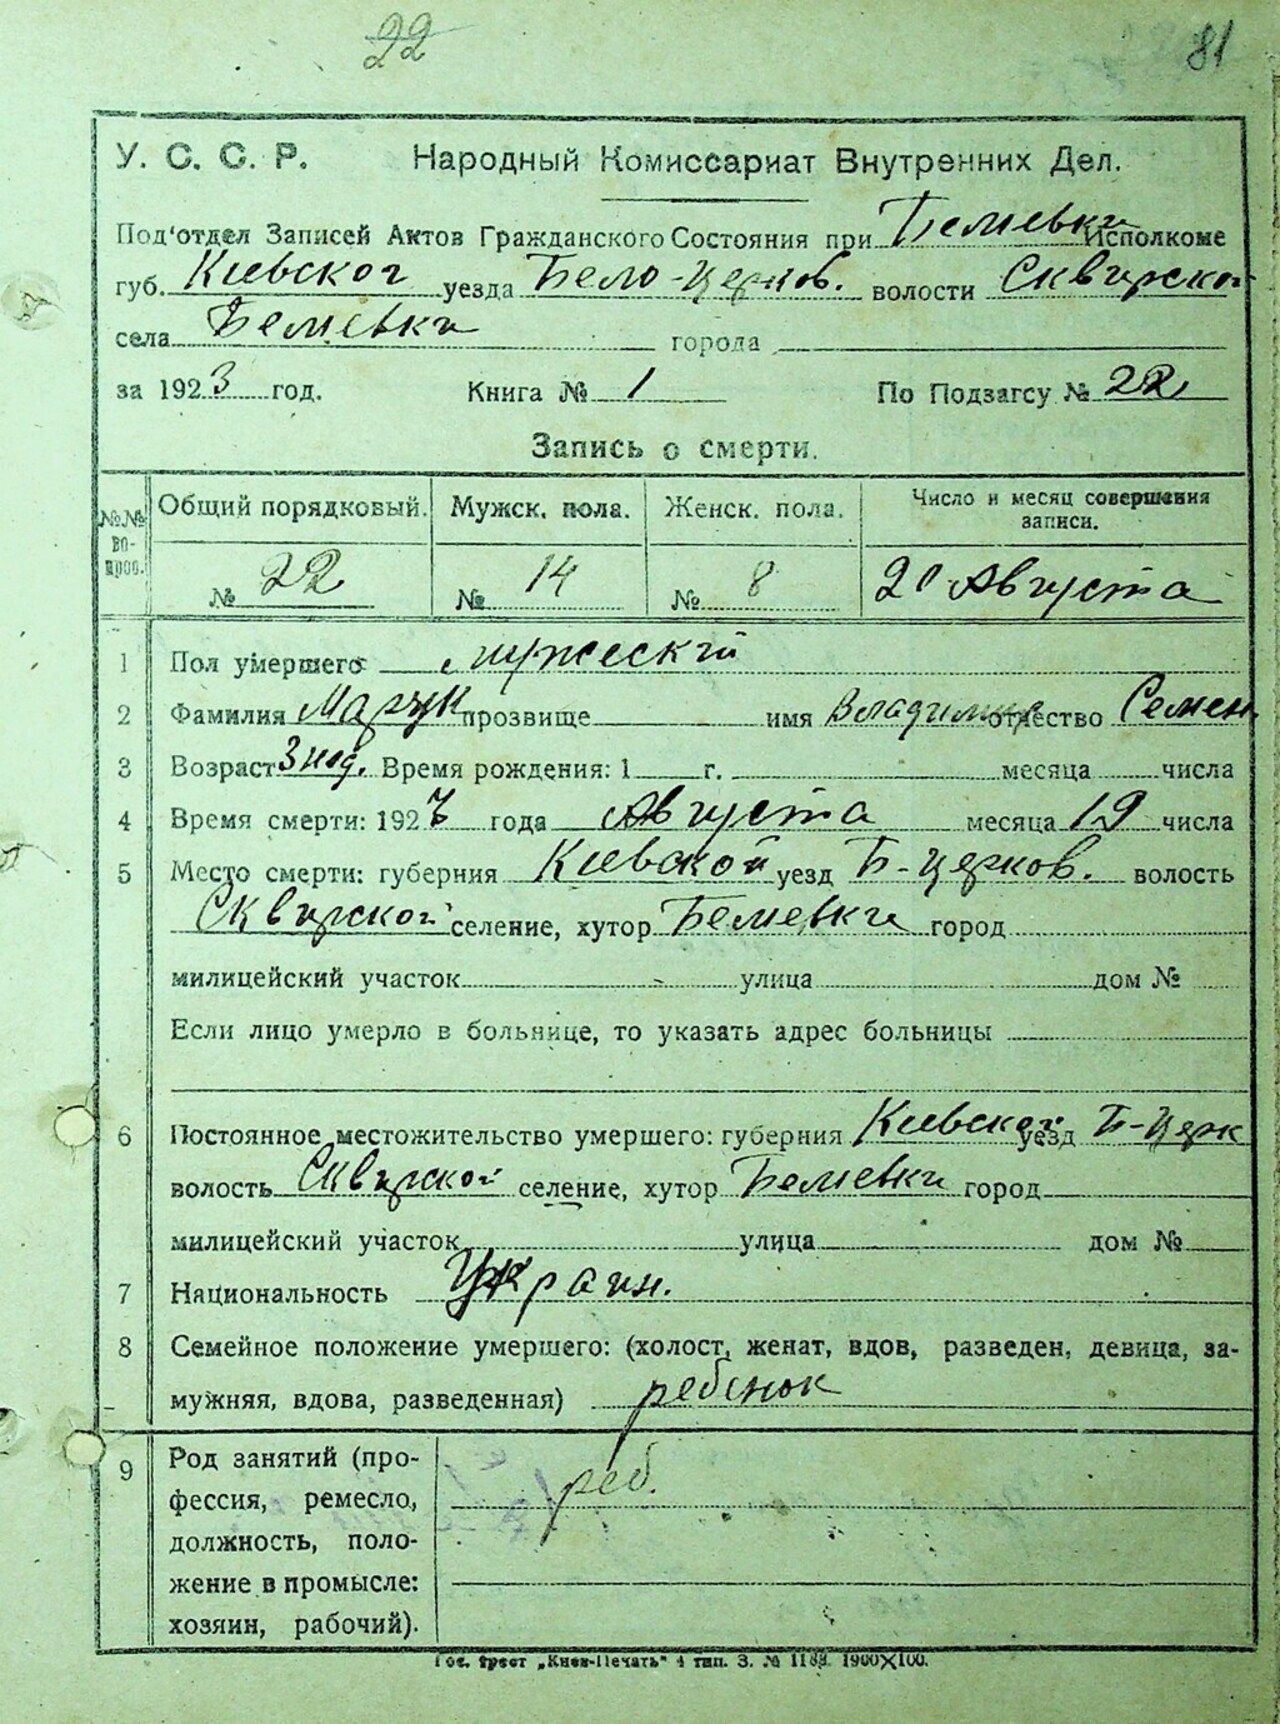 22 81
У. С. С. Р. Народный Комиссариат Внутренних Дел.
Под'отдел Записей Актов Гражданского Состояния при Исполкоме
губ. Киевской уезда Бело-Церков. волости Сквирской
села города
за 1923 год. Книга № 1 По Подзагсу № 22
Запись о смерти.
№№ во- прос. Общий порядковый. Мужск. пола. Женск. пола. Число и месяц совершения записи.
№ 22 № 14 № 8 20 Августа
1 Пол умершего мужеский
2 Фамилия прозвище имя Владимир отчество Семен.
3 Возраст 3 нед. Время рождения: 1 г. месяца числа
4 Время смерти: 1923 года Августа месяца 19 числа
5 Место смерти: губерния Киевской уезд Б-Церков. волость
Сквирской селение, хутор город
милицейский участок улица дом №
Если лицо умерло в больнице, то указать адрес больницы
6 Постоянное местожительство умершего: губерния Киевской уезд Б-Церк
волость Сквирской селение, хутор город
милицейский участок улица дом №
7 Национальность Украин.
8 Семейное положение умершего: (холост, женат, вдов, разведен, девица, за-
мужняя, вдова, разведенная) ребенок
9 Род занятий (про-
фессия, ремесло, реб.
должность, поло-
жение в промысле:
хозяин, рабочий).
Гос. трест „Киев-Печать" 4 тип. З. № 1900×100.